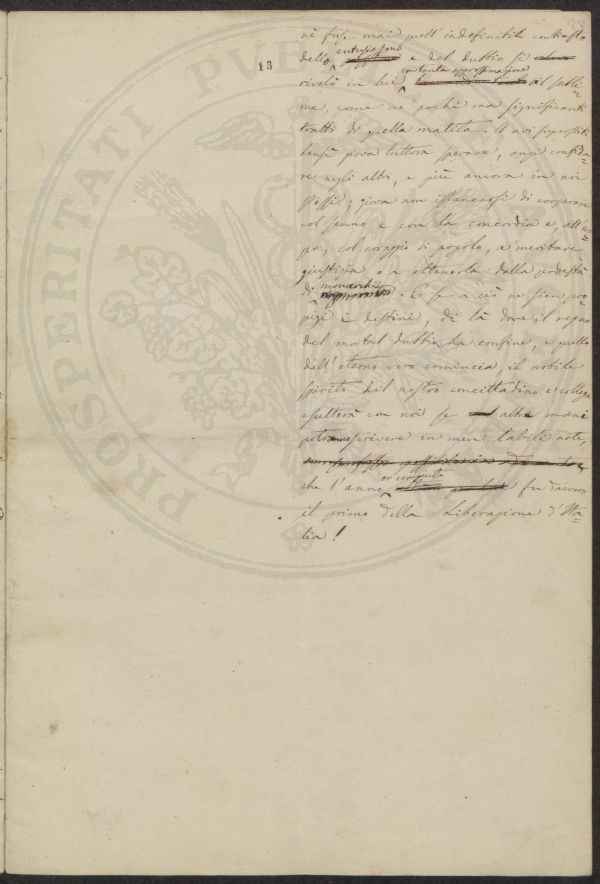 23
13
nè forse mai quell'indefinibile contrasto
dello entusiasmo e del dubbio si
rivelò in lui con tanta approssimazione al subli=
me, come ne' pochi ma significanti
tratti di quella matita. A noi superstiti
bensì giova tuttora sperare, anzi confida=
re negli altri, e più ancora in noi
stessi; giova non istancarsi di cooperare
col senno e con la concordia e, all'uo=
po, col coraggio di popolo, a meritare
giustizia o a ottenerla dalla podestà
di monarchi. E se a ciò ne sien pro=
pizi i destini, di là dove il regno
del mortal dubbio ha confine, e quello
dell'eterno vero comincia, il nobile
spirito del nostro concittadino e collega
esulterà con noi se altre mani
potranno scrivere in men labili note,
che l'anno or compiuto fu davvero
il primo della Liberazione d'Ita=
lia!
PROSPERITATI PVB